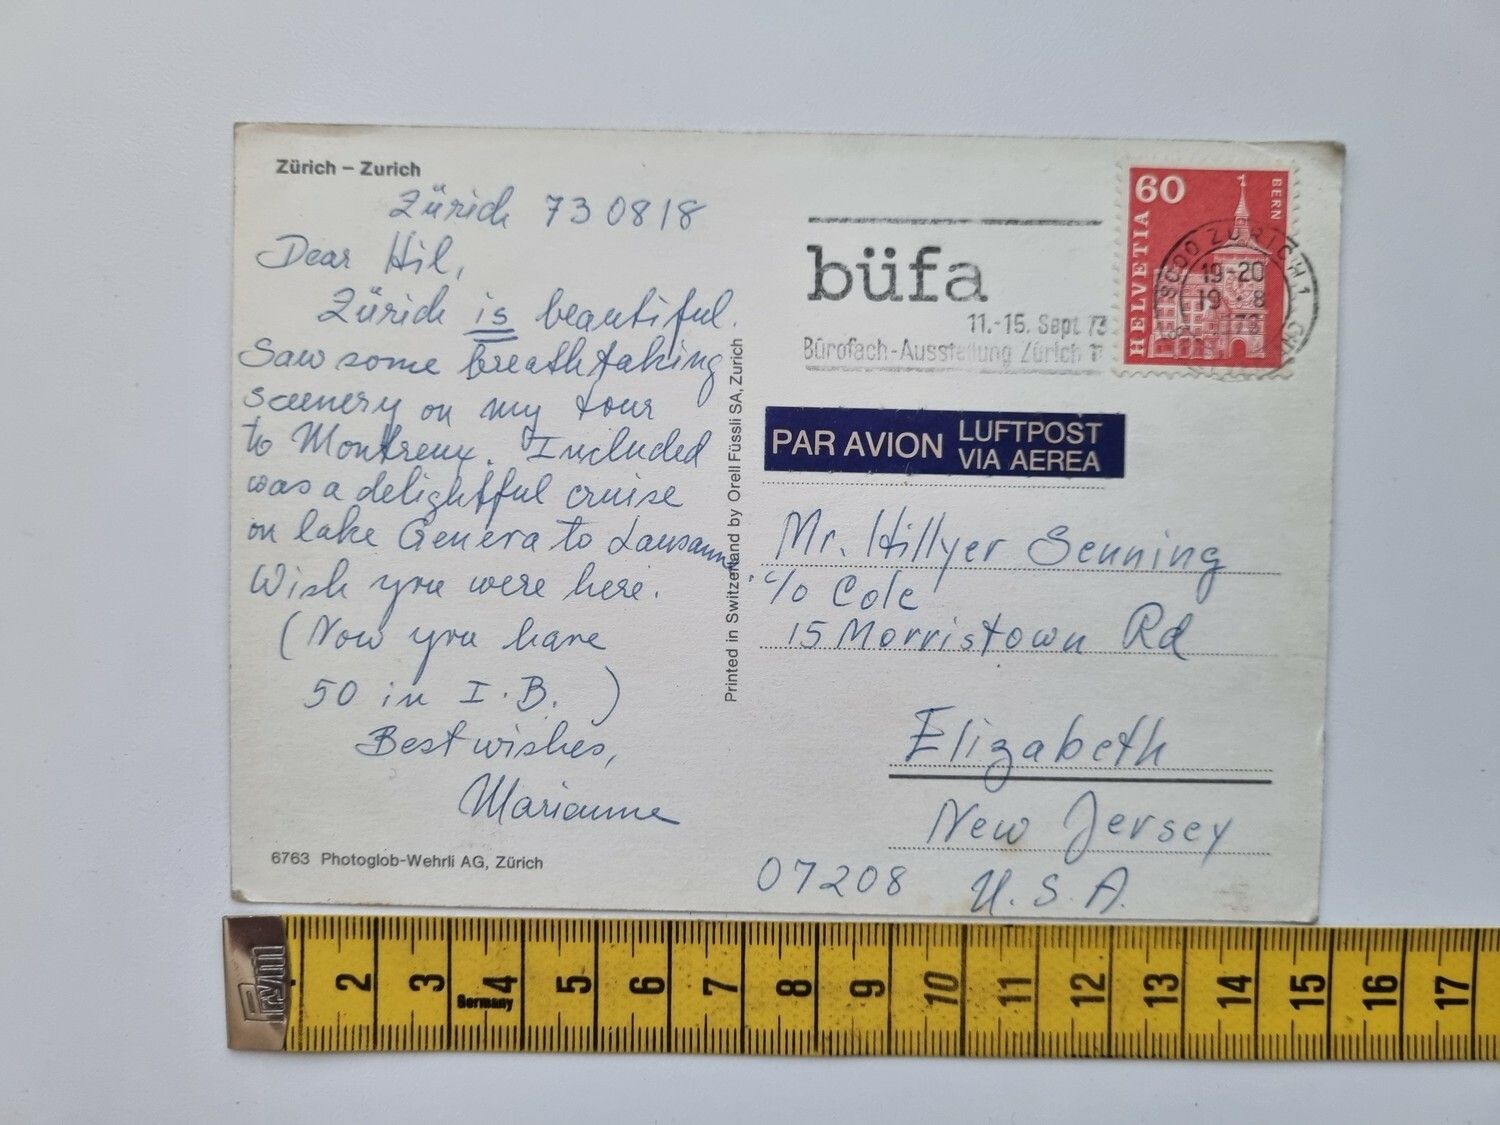 Zürich – Zurich
Zürich 730818
Dear Hil,
Zürich is beautiful.
Saw some breathtaking
scenery on my tour
to Montreux. Included
was a delightful cruise
on lake Geneva to Lausanne.
Wish you were here.
(Now you have
50 in I.B.)
Best wishes,
Marianne
6763 Photoglob-Wehrli AG, Zürich
Printed in Switzerland by Orell Füssli SA, Zurich
büfa
11.-15. Sept. 73
Bürofach-Ausstellung Zürich 11
60
BERN
HELVETIA
8000 ZÜRICH 1
19-20
19.-8
73
PAR AVION LUFTPOST
VIA AEREA
Mr. Hillyer Senning
c/o Cole
15 Morristown Rd
Elizabeth
New Jersey
07208 U.S.A.
Prym
2 3 4 5 6 7 8 9 10 11 12 13 14 15 16 17
Germany